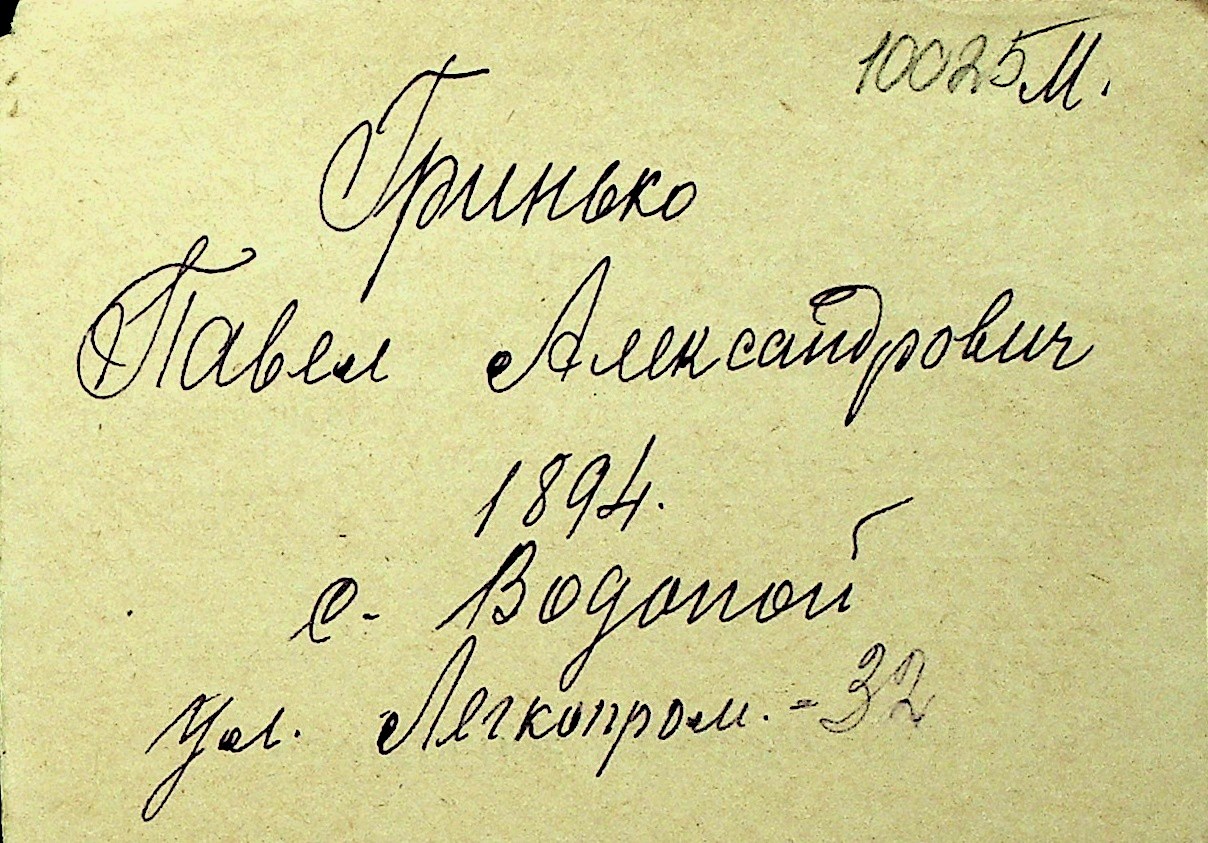 10025 М.
Гринько
Павел Александрович
1894.
с. Водопой
ул. Легкопром. - 32